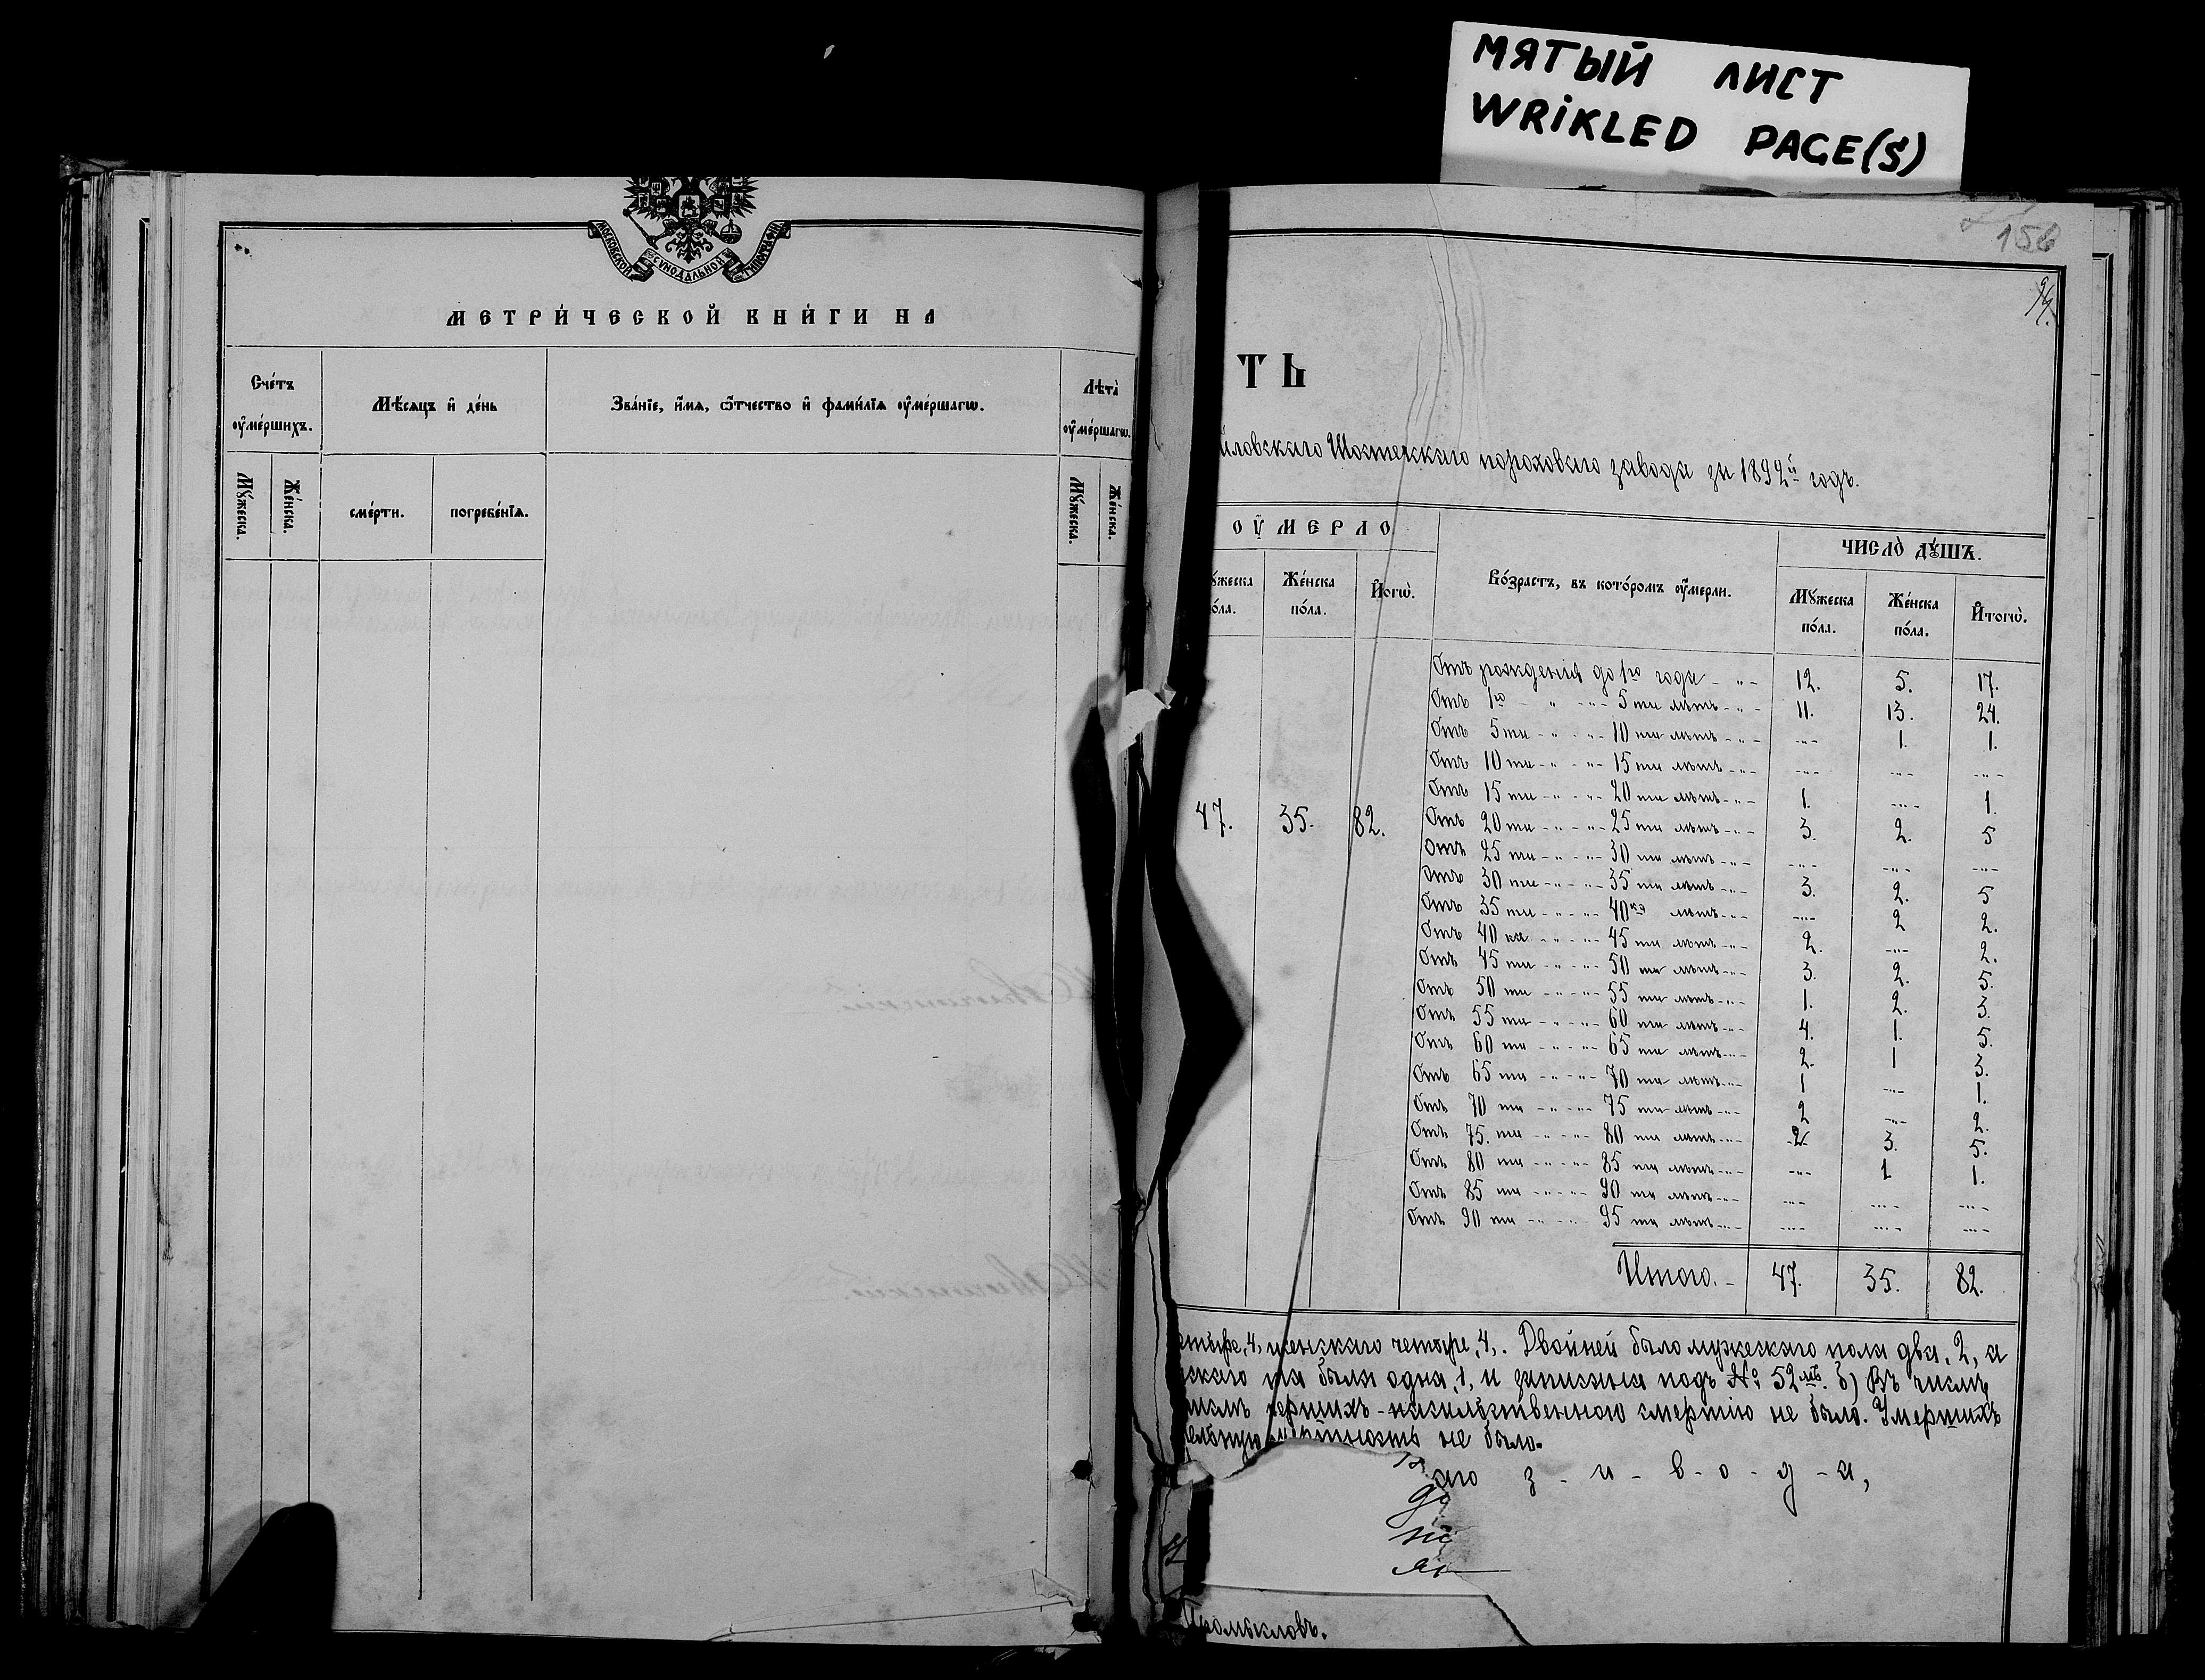 МЯТЫЙ ЛИСТ
WRiKLED PAGE(S)
МОСКОВСКОЙ СѴНОДАЛЬНОЙ ТИПОГРАФІИ
МЕТРИ́ЧЕСКОЙ КНИ́ГИ НА
Сче́тъ ᲂу҆ме́ршихъ.
Мѣ́сяцъ и҆ де́нь
Зва́нїе, и҆́мѧ, ѻ҆́тчество и҆ фами́лїѧ ᲂу҆ме́ршагѡ.
Лѣта̀ ᲂу҆ме́ршагѡ.
Мꙋ́жеска.
Же́нска.
сме́рти.
погребе́нїѧ.
Мꙋ́жеска.
Же́нска.
156
94.
ТЬ
йловскаго Шостенскаго пороховаго завода за 1892й годъ.
ОУ҆МЕРЛО
Возрастъ, въ кото́ромъ ᲂу҆́мерли.
ЧИСЛО̀ ДꙊ́ШЪ.
ꙋ́жеска по́ла.
Же́нска по́ла.
И҆тогѡ̀.
Мꙋ́жеска по́ла.
Же́нска по́ла.
И҆тогѡ̀.
47. 35. 82.
Отъ рожденія до 1го года - „ - 12. 5. 17.
Отъ 1го - „ - „ - 5 ти лѣтъ - „ - 11. 13. 24.
Отъ 5 ти - „ - „ - 10 ти лѣтъ - „ - - „ - 1. 1.
Отъ 10 ти - „ - „ - 15 ти лѣтъ - „ - - „ - - „ - - „ -
Отъ 15 ти - „ - „ - 20 ти лѣтъ - „ - 1. - „ - 1.
Отъ 20 ти - „ - „ - 25 ти лѣтъ - „ - 3. 2. 5
Отъ 25 ти - „ - „ - 30 ти лѣтъ - „ - - „ - - „ - - „ -
Отъ 30 ти - „ - „ - 35 ти лѣтъ - „ - 3. 2. 5
Отъ 35 ти - „ - „ - 40ка лѣтъ - „ - - „ - 2 2.
Отъ 40 ка - „ - „ - 45 ти лѣтъ - „ - 2. - „ - 2.
Отъ 45 ти - „ - „ - 50 ти лѣтъ - „ - 3. 2. 5.
Отъ 50 ти - „ - „ - 55 ти лѣтъ - „ - 1. 2. 3.
Отъ 55 ти - „ - „ - 60 ти лѣтъ - „ - 4. 1. 5.
Отъ 60 ти - „ - „ - 65 ти лѣтъ - „ - 2. 1 3.
Отъ 65 ти - „ - „ - 70 ти лѣтъ - „ - 1 - „ - 1.
Отъ 70 ти - „ - „ - 75 ти лѣтъ - „ - 2 - „ - 2.
Отъ 75. ти - „ - „ - 80 ти лѣтъ - „ - 2 3. 5.
Отъ 80 ти - „ - „ - 85 ти лѣтъ - „ - - „ - 1 1.
Отъ 85 ти - „ - „ - 90 ти лѣтъ - „ - - „ - - „ - - „ -
Отъ 90 ти - „ - „ - 95 ти лѣтъ - „ - - „ - - „ - - „ -
Итого. - 47. 35. 82.
етыре, 4, женскаго четыре, 4,. Двойней было мужескаго пола два, 2, а
скаго была одна, 1, и записана подъ № 52мъ. б) Въ числѣ
мершихъ - насильственною смертію не было. Умершихъ
не было.
аго з - а - в - о - д - а,